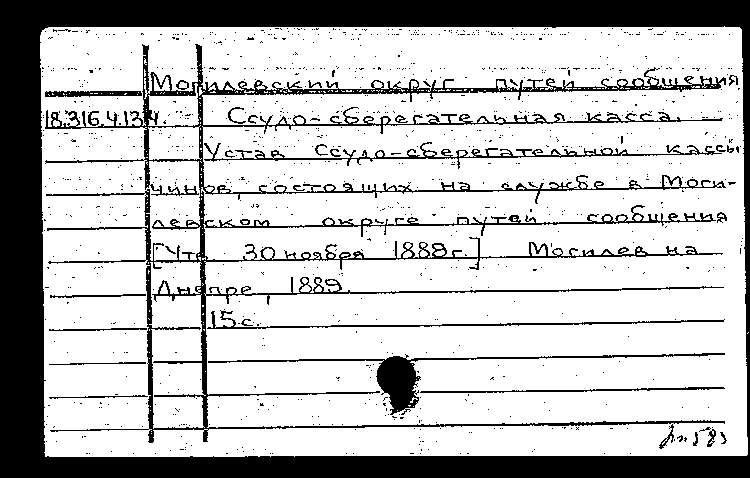 Могилевский округ путей сообщения
18.316.4.134. Ссудо-сберегательная касса. —
Устав Ссудо-сберегательной кассы
чинов, состоящих на службе в Моги-
левском округе путей сообщения
[Утв 30 ноября 1888г.] Могилев на
Днепре, 1889.
15 с.